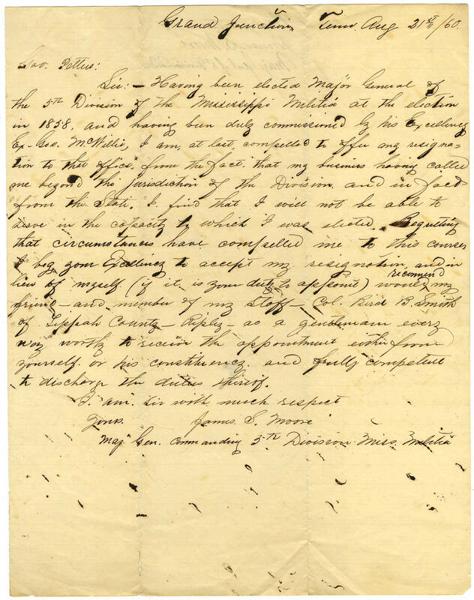 Grand Junction Tenn Aug 21st/60.
Gov. Pettus:
Sir:- Having been elected Major General of
the 5th Division of the Mississippi Militia at the election
in 1858. and having been duly commissioned by his Excellency
Ex-Gov. McWillie, I am, at last, compelled to offer my resigna-
tion to that office, from the fact, that my business having called
me beyond the jurisdiction of the Division and in fact
from the State. I find that I will not be able to
serve in the capacity to which I was elected. Regretting
that circumstances have compelled me to this course
I beg your Excellency to accept my resignation and in
lieu of myself (if it is your duty to appoint) would recommend my
friend - and member of my Staff - Col. Bird B. Smith
of Tippah County - Ripley - as a gentleman every
way worthy to receive the appointment either from
yourself or his constituency and fully competent
to discharge the duties thereof.
I am Sir with much respect
Yours James S. Moore
Maj Gen. Commanding 5th Division Miss. Militia